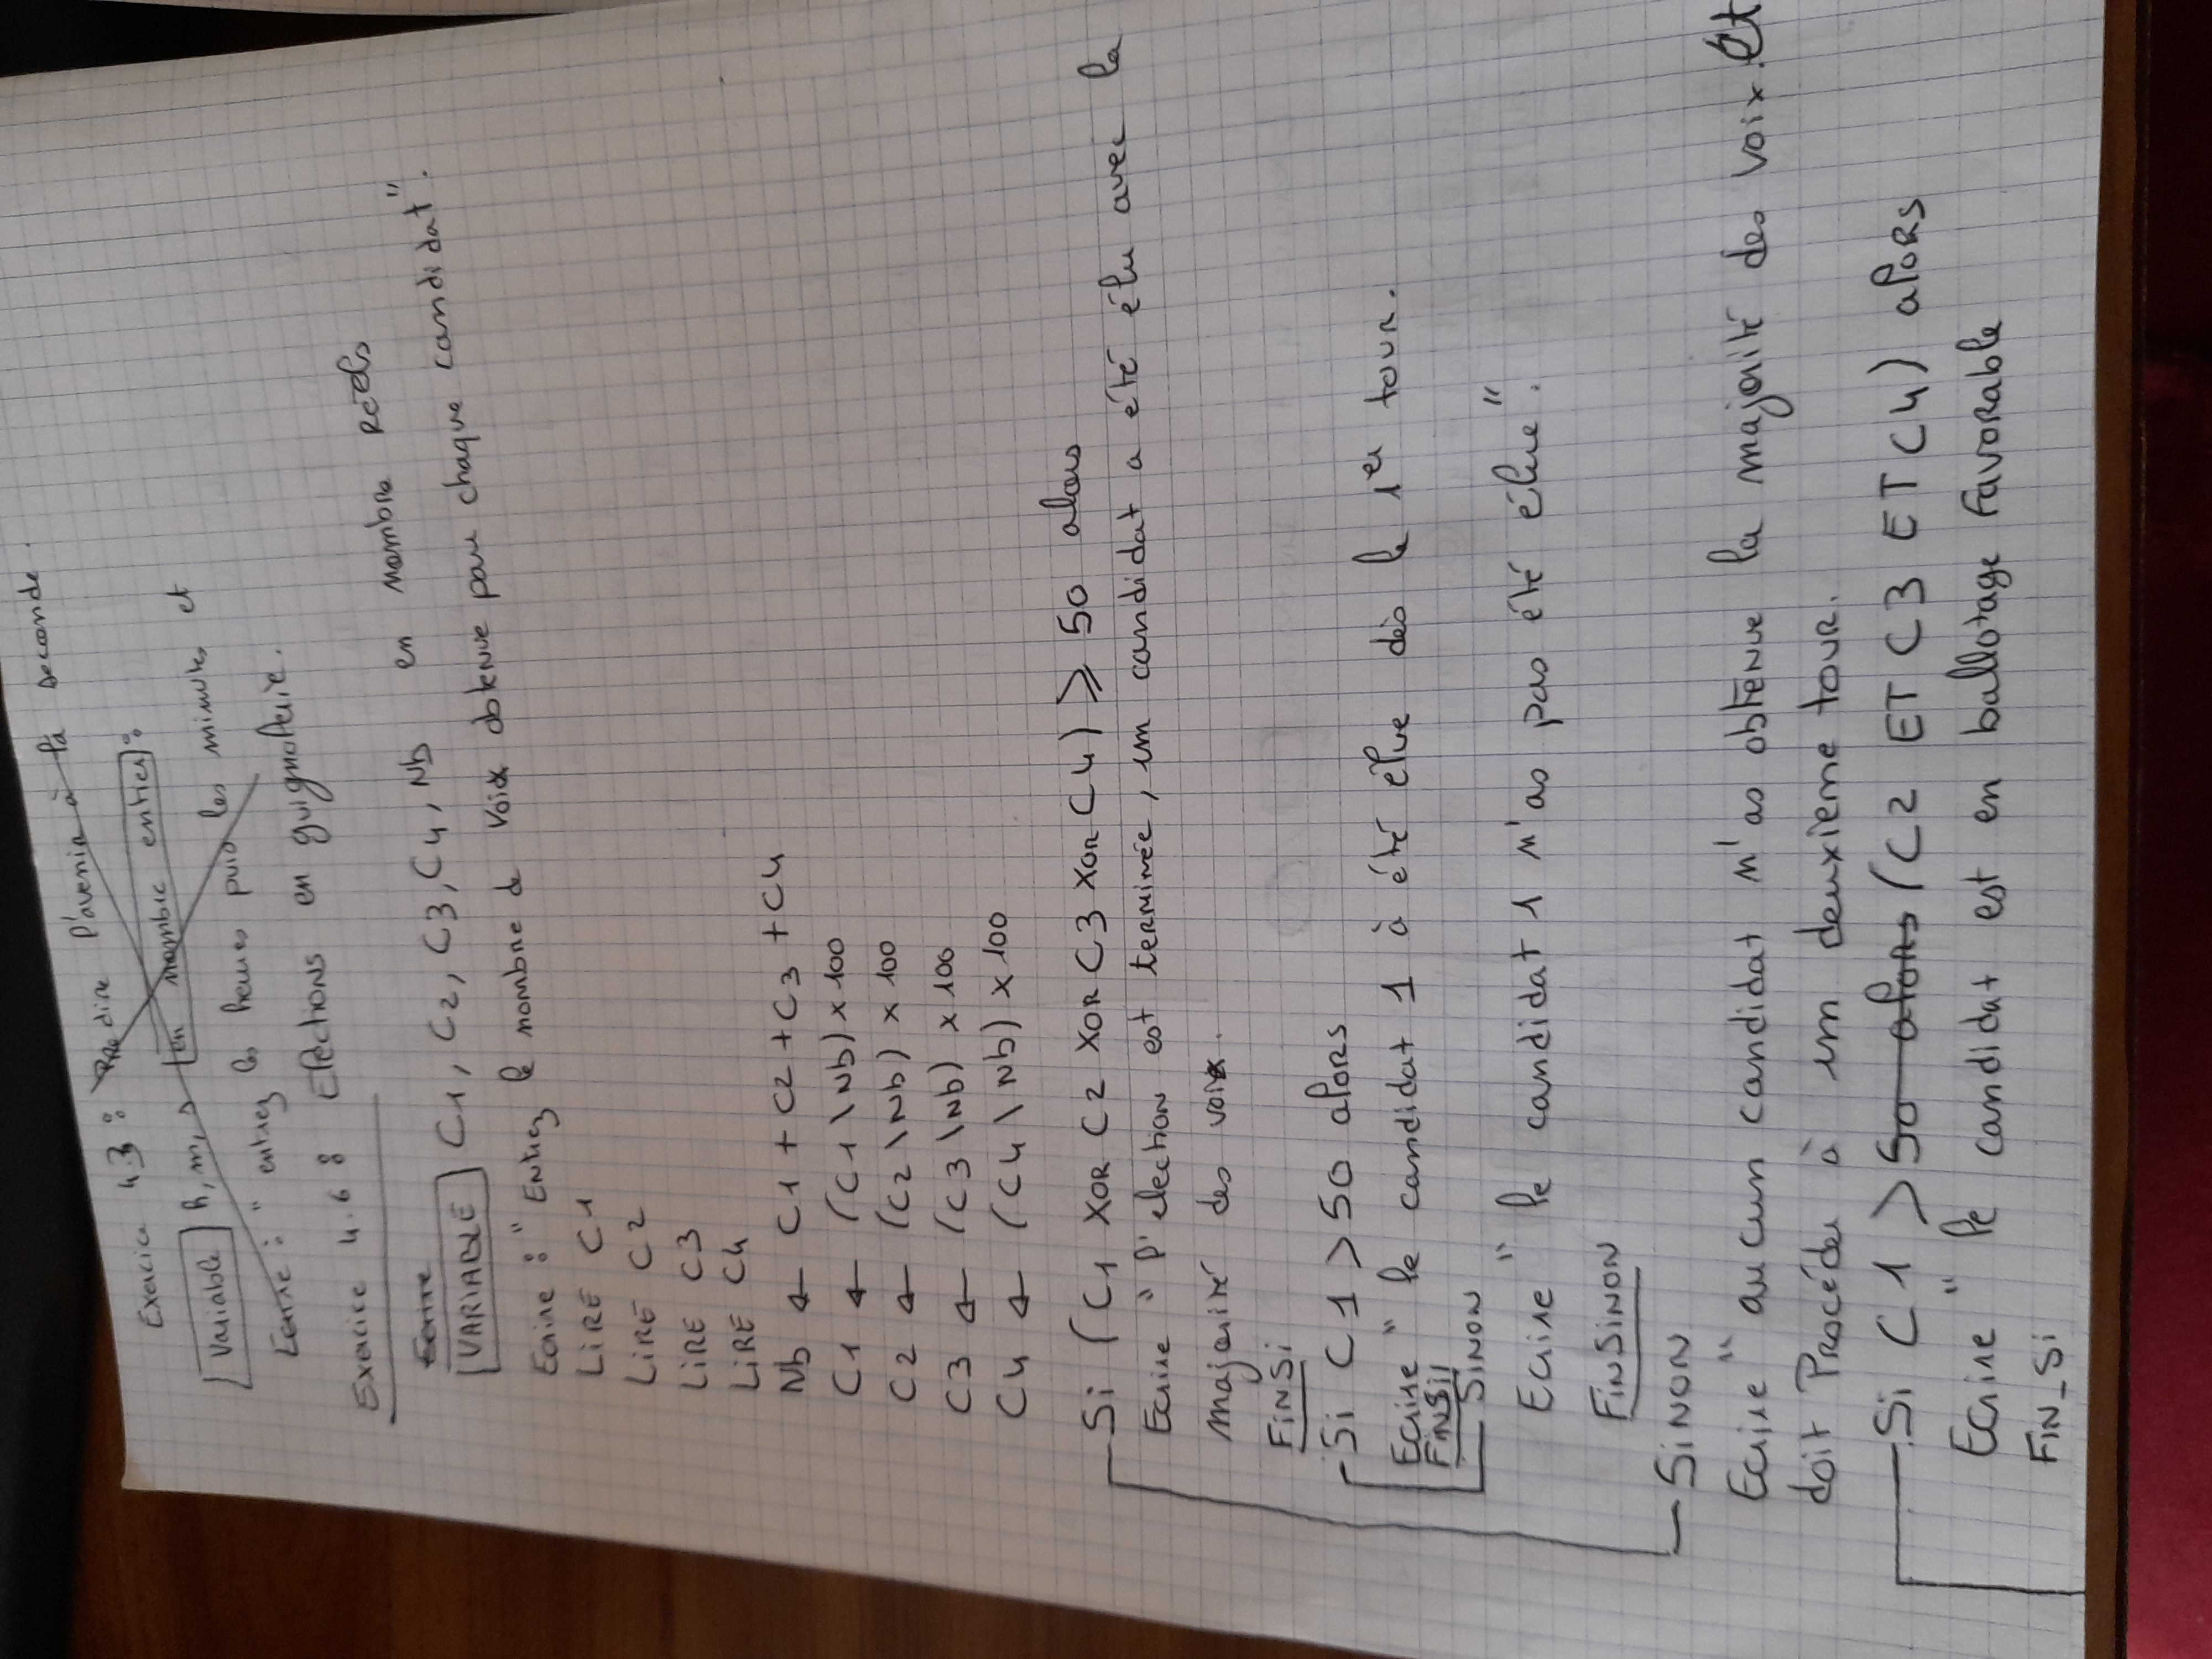 Exercice 4.3 : Predire l'avenir à la seconde.
Variable h, m, s en nombre entier :
Ecrire : " entrez les heures puis les minutes et
Exercice 4.6 : Elections en guignolerie.
Ecrire
VARIABLE C1, C2, C3, C4, Nb en nombre Réels
Ecrire : " Entrez le nombre de voix obtenue pour chaque candidat".
LiRE C1
LiRE C2
LiRE C3
LiRE C4
Nb ← C1 + C2 + C3 + C4
C1 ← (C1 \ Nb) x 100
C2 ← (C2 \ Nb) x 100
C3 ← (C3 \ Nb) x 100
C4 ← (C4 \ Nb) x 100
Si (C1 XOR C2 XOR C3 XOR C4) ⩾ 50 alors
Ecrire " l'election est terminée, un candidat a été élu avec la
majorité des voix.
FiNSi
Si C1 > 50 alors
Ecrire " le candidat 1 à été élue dès le 1er tour.
FiNSi
SiNON
Ecrire " le candidat 1 n'as pas été élue".
FiNSiNON
SiNON
Ecrire " aucun candidat n'as obtenue la majorité des voix. Et
doit Procéder à un deuxieme tour.
Si C1 > 50 alors (C2 ET C3 ET C4) alors
Ecrire " le candidat est en ballotage Favorable
FiN_Si